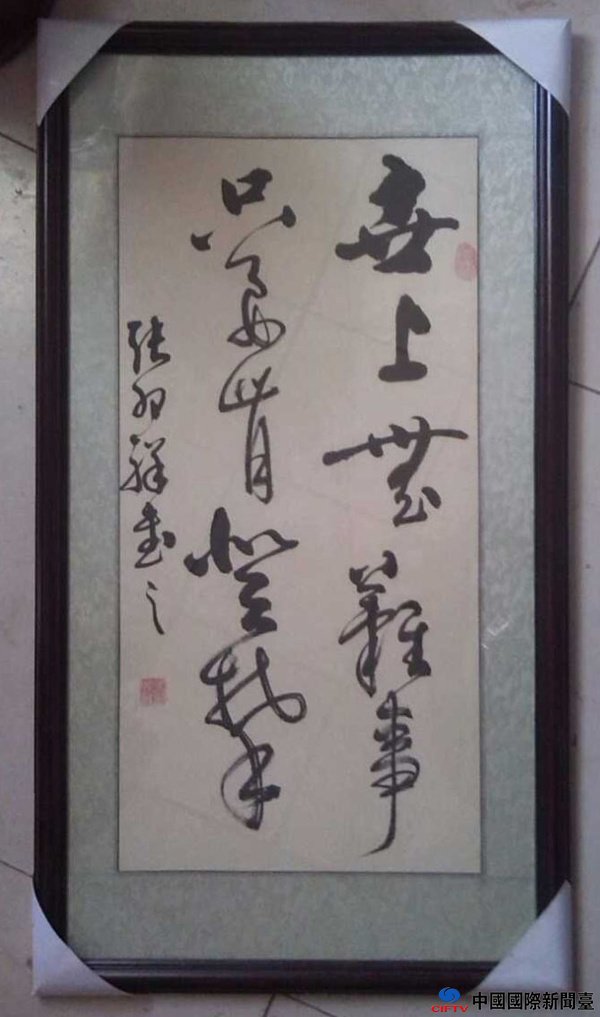 世上無難事
只要肯登攀
张羽祥書之
CIFTV 中國國際新聞臺